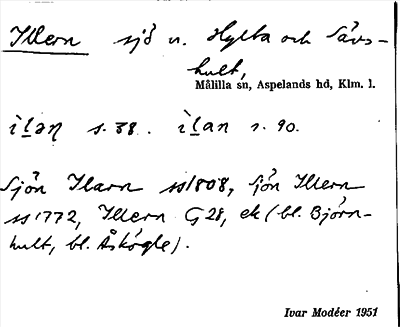 Illern sjö n. Hylta och Sävs-
hult,
Målilla sn, Aspelands hd, Klm. l.
ìlan s. 38. ìlan s. 90.
Sjön Ilarn ss 1808, Sjön Illern
ss 1772, Illern G 28, ek (bl. Björn-
hult, bl. Åskögle).
Ivar Modéer 1951